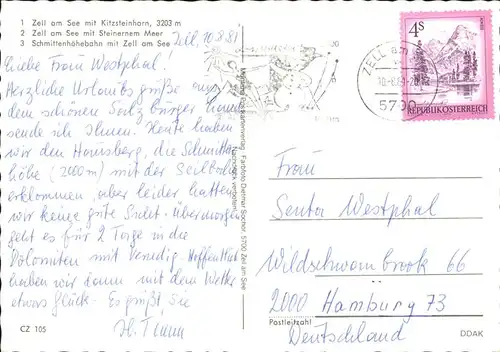 1 Zell am See mit Kitzsteinhorn, 3203 m
2 Zell am See mit Steinernem Meer
3 Schmittenhöhebahn mit Zell am See
Zell, 10.8.81
Liebe Frau Westphal!
Herzliche Urlaubsgrüße aus
dem schönen Salzburger Land
sende ich Ihnen. Heute haben
wir den Hausberg, die Schmitten-
höhe (2000 m) mit der Seilbahn
erklommen, aber leider hatten
wir keine gute Sicht. Übermorgen
geht es für 2 Tage in die
Dolomiten mit Venedig. Hoffentlich
haben wir dann mit dem Wetter
etwas Glück. Es grüßt Sie
H. Timm
CZ 105
Farbfoto Dietmar Sochor, 5700 Zell am See
Nachdruck verboten
ZELL am
5700
4S
REPUBLIK ÖSTERREICH
Frau
Senta Westphal
Wildschwanbrook 66
2000 Hamburg 73
Postleitzahl
Deutschland
DDAK